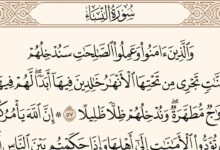 سُورَةُ النِّسَاء
وَالَّذِينَ ءَامَنُوا وَعَمِلُوا الصَّٰلِحَٰتِ سَنُدْخِلُهُمْ
تَجْرِى مِن تَحْتِهَا الْأَنْهَٰرُ خَٰلِدِينَ فِيهَآ أَبَدًا لَّهُمْ
مُّطَهَّرَةٌ وَنُدْخِلُهُمْ ظِلًّا ظَلِيلًا ٥٧ ۞ إِنَّ اللَّهَ
الْأَمَٰنَٰتِ إِلَىٰٓ أَهْلِهَا وَإِذَا حَكَمْتُم بَيْنَ النَّاسِ